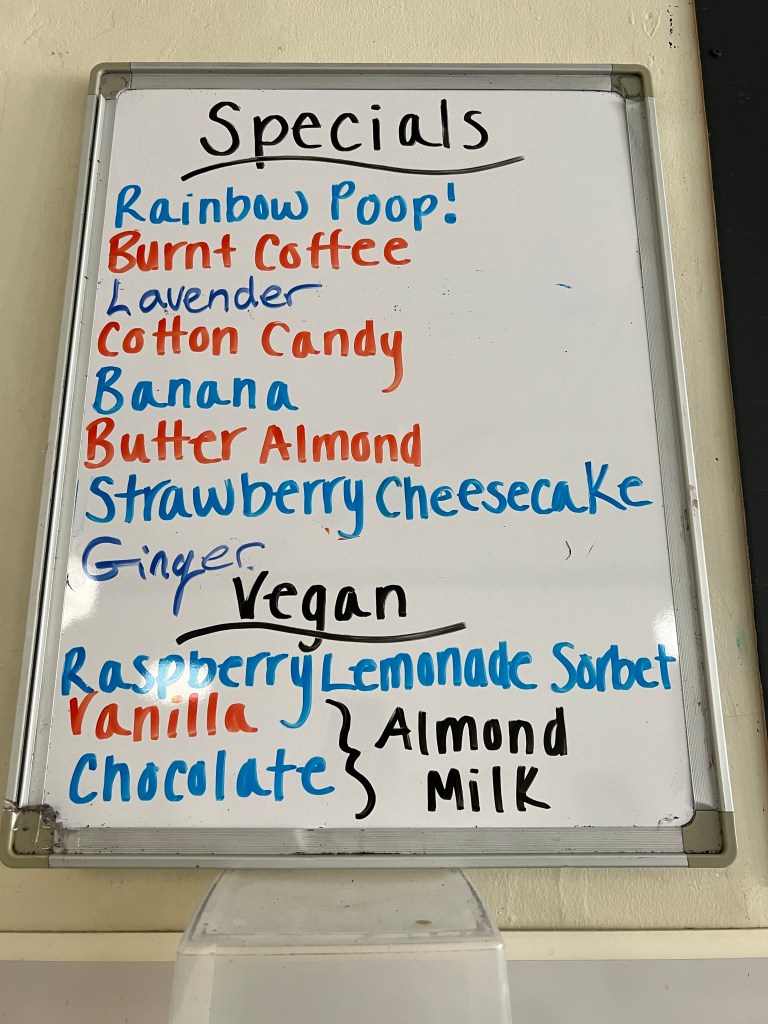 Specials
Rainbow Poop!
Burnt Coffee
Lavender
Cotton Candy
Banana
Butter Almond
Strawberry Cheesecake
Ginger
Vegan
Raspberry Lemonade Sorbet
Vanilla
Chocolate } Almond
Milk